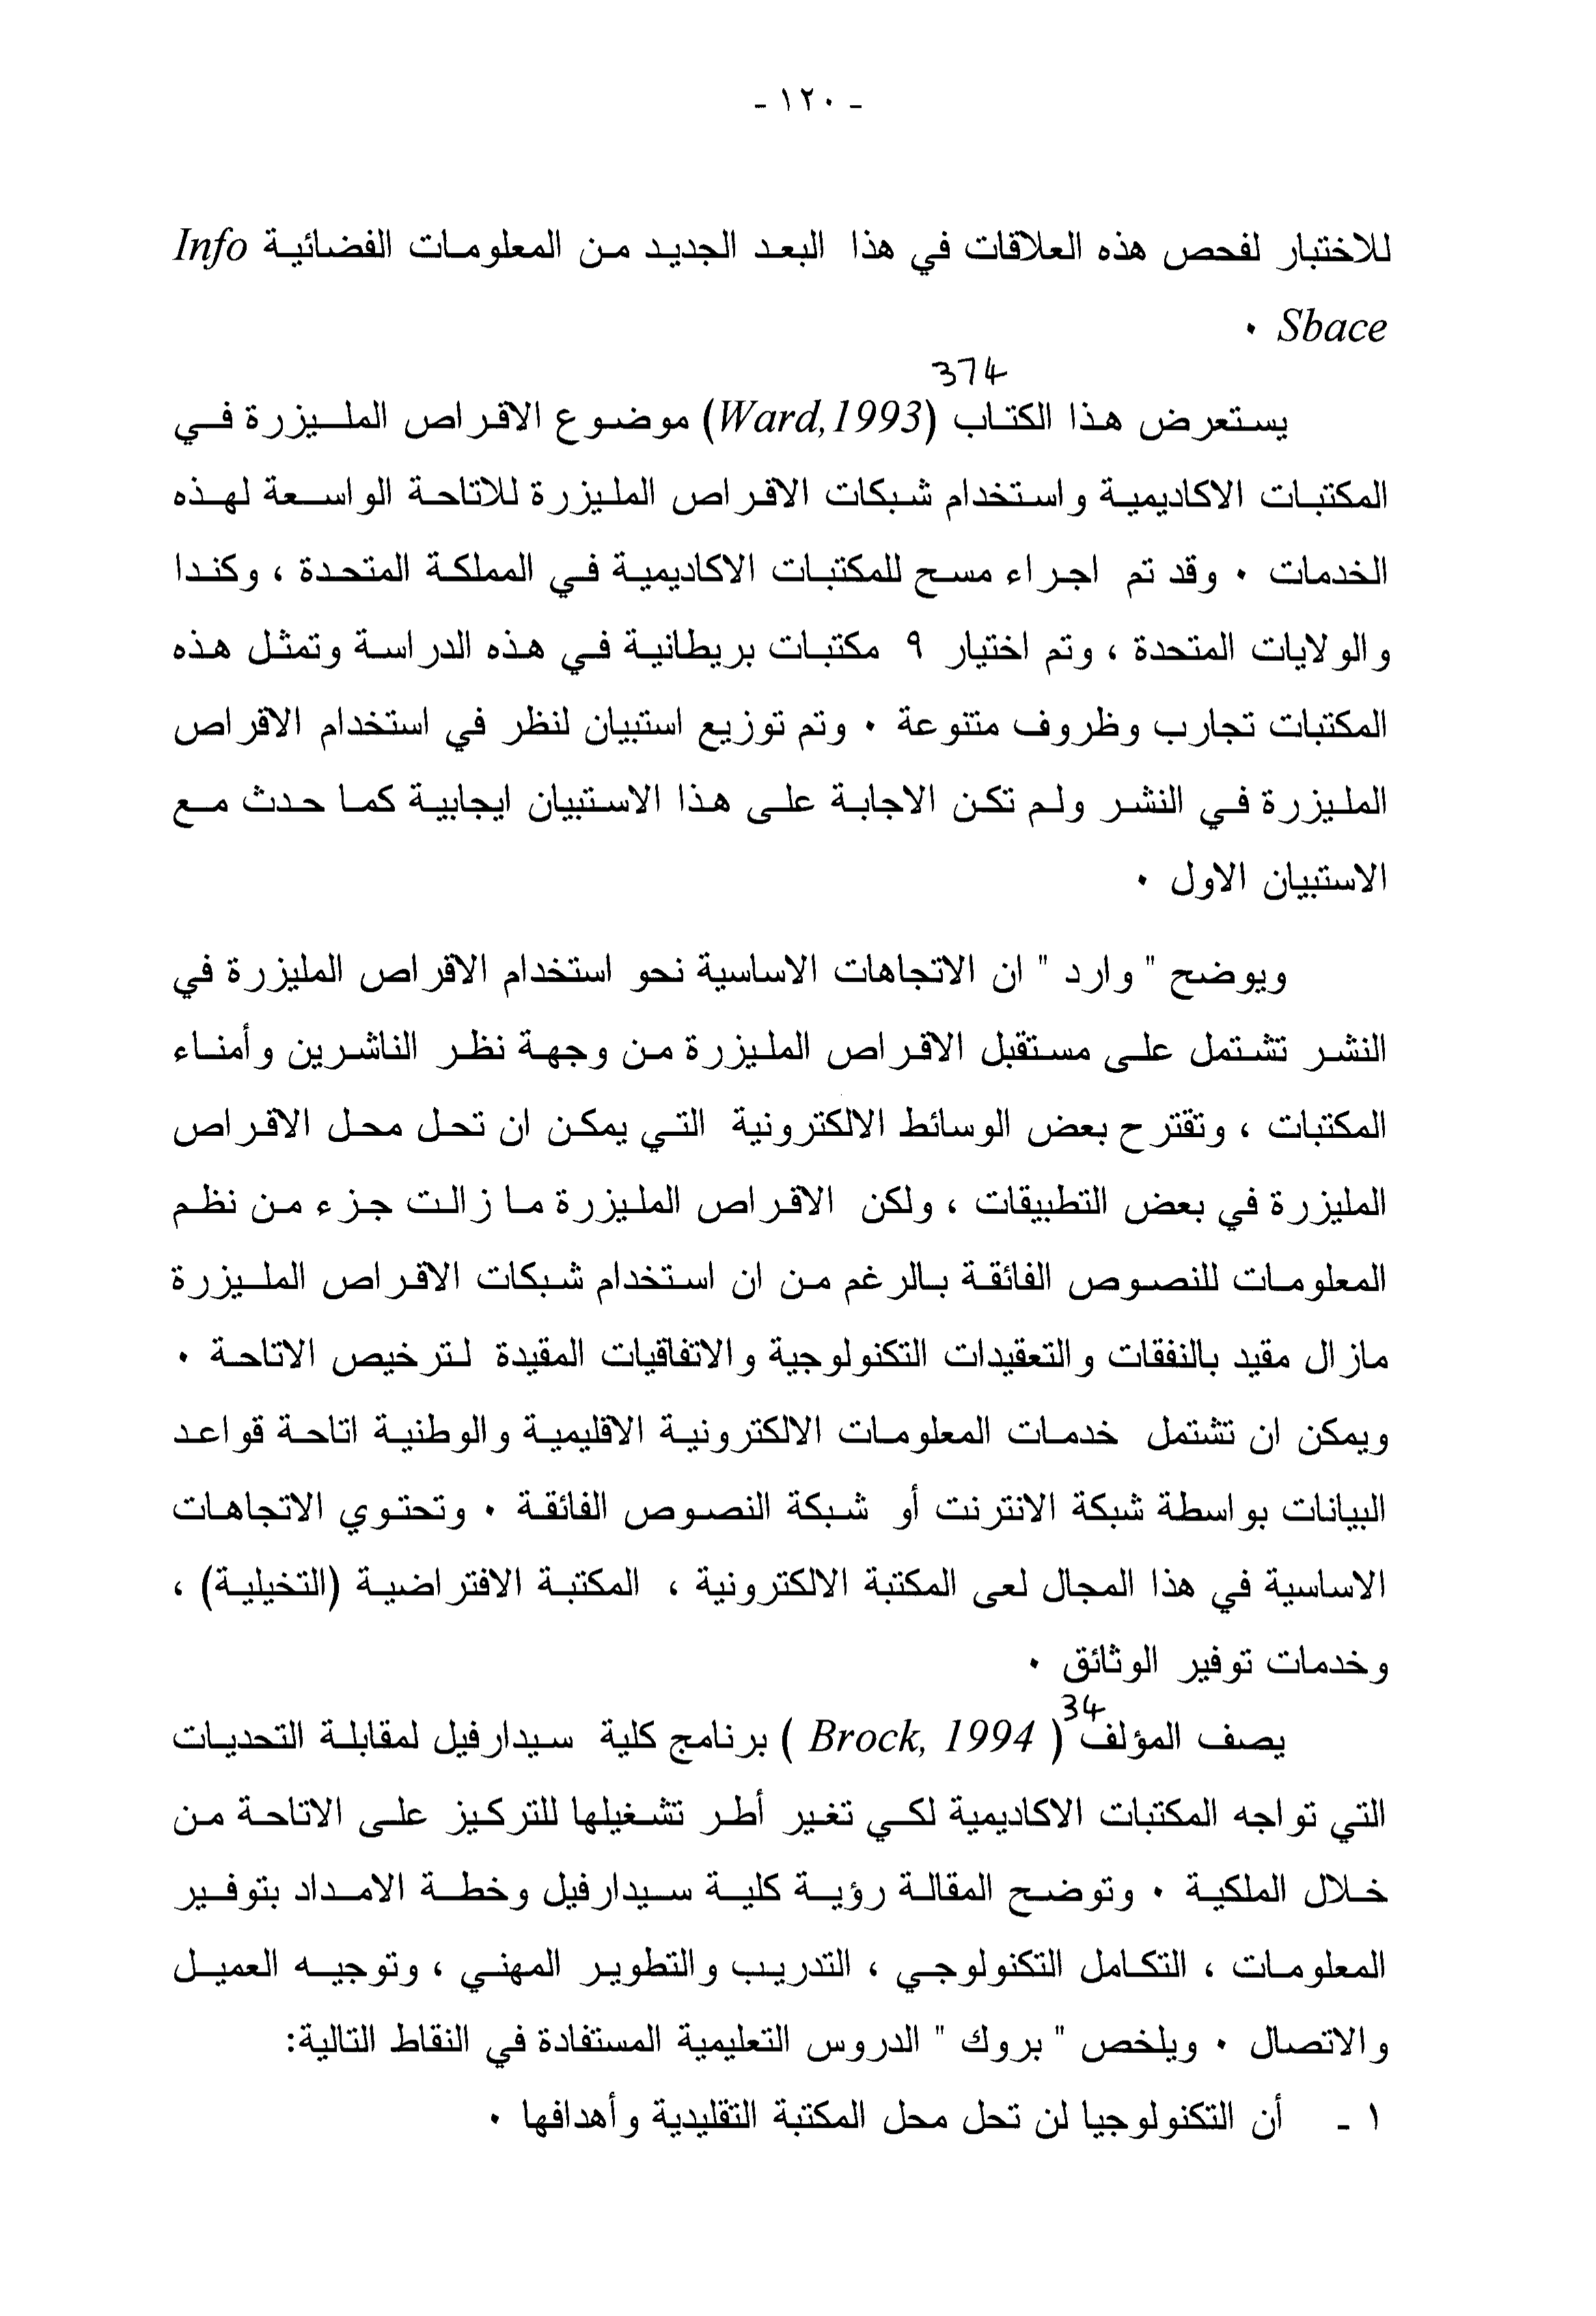 - ١٢٠ -
للاختبار لفحص هذه العلاقات في هذا البعد الجديد من المعلومات الفضائية Info
Sbace ٠
374
يستعرض هذا الكتاب (Ward,1993) موضوع الاقراص المليزرة في
المكتبات الاكاديمية واستخدام شبكات الاقراص المليزرة للاتاحة الواسعة لهذه
الخدمات ٠ وقد تم اجراء مسح للمكتبات الاكاديمية في المملكة المتحدة ، وكندا
والولايات المتحدة ، وتم اختيار ٩ مكتبات بريطانية في هذه الدراسة وتمثل هذه
المكتبات تجارب وظروف متنوعة ٠ وتم توزيع استبيان لنظر في استخدام الاقراص
المليزرة في النشر ولم تكن الاجابة على هذا الاستبيان ايجابية كما حدث مع
الاستبيان الاول ٠
ويوضح " وارد " ان الاتجاهات الاساسية نحو استخدام الاقراص المليزرة في
النشر تشتمل على مستقبل الاقراص المليزرة من وجهة نظر الناشرين وأمناء
المكتبات ، وتقترح بعض الوسائط الالكترونية التي يمكن ان تحل محل الاقراص
المليزرة في بعض التطبيقات ، ولكن الاقراص المليزرة ما زالت جزء من نظم
المعلومات للنصوص الفائقة بالرغم من ان استخدام شبكات الاقراص المليزرة
مازال مقيد بالنفقات والتعقيدات التكنولوجية والاتفاقيات المقيدة لترخيص الاتاحة ٠
ويمكن ان تشتمل خدمات المعلومات الالكترونية الاقليمية والوطنية اتاحة قواعد
البيانات بواسطة شبكة الانترنت أو شبكة النصوص الفائقة ٠ وتحتوي الاتجاهات
الاساسية في هذا المجال لعى المكتبة الالكترونية ، المكتبة الافتراضية (التخيلية) ،
وخدمات توفير الوثائق ٠
34
يصف المؤلف ( Brock, 1994 ) برنامج كلية سيدارفيل لمقابلة التحديات
التي تواجه المكتبات الاكاديمية لكي تغير أطر تشغيلها للتركيز على الاتاحة من
خلال الملكية ٠ وتوضح المقالة رؤية كلية سيدارفيل وخطة الامداد بتوفير
المعلومات ، التكامل التكنولوجي ، التدريب والتطوير المهني ، وتوجيه العميل
والاتصال ٠ ويلخص " بروك " الدروس التعليمية المستفادة في النقاط التالية:
١ - أن التكنولوجيا لن تحل محل المكتبة التقليدية وأهدافها ٠